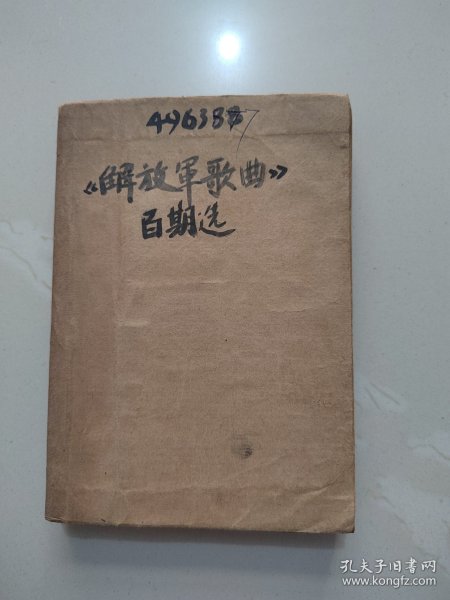 449638
《解放軍歌曲》
百期选
孔夫子旧书网
www.kongfz.com